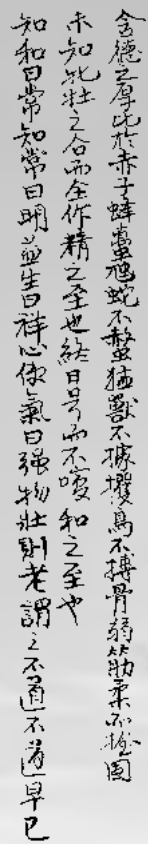 含德之厚比於赤子蜂虿虺蛇不螫猛獸不據攫鳥不搏骨弱筋柔而握固
未知牝牡之合而全作精之至也終日号而不嗄和之至也
知和曰常知常曰明益生曰祥心使氣曰强物壯則老謂之不道不道早已